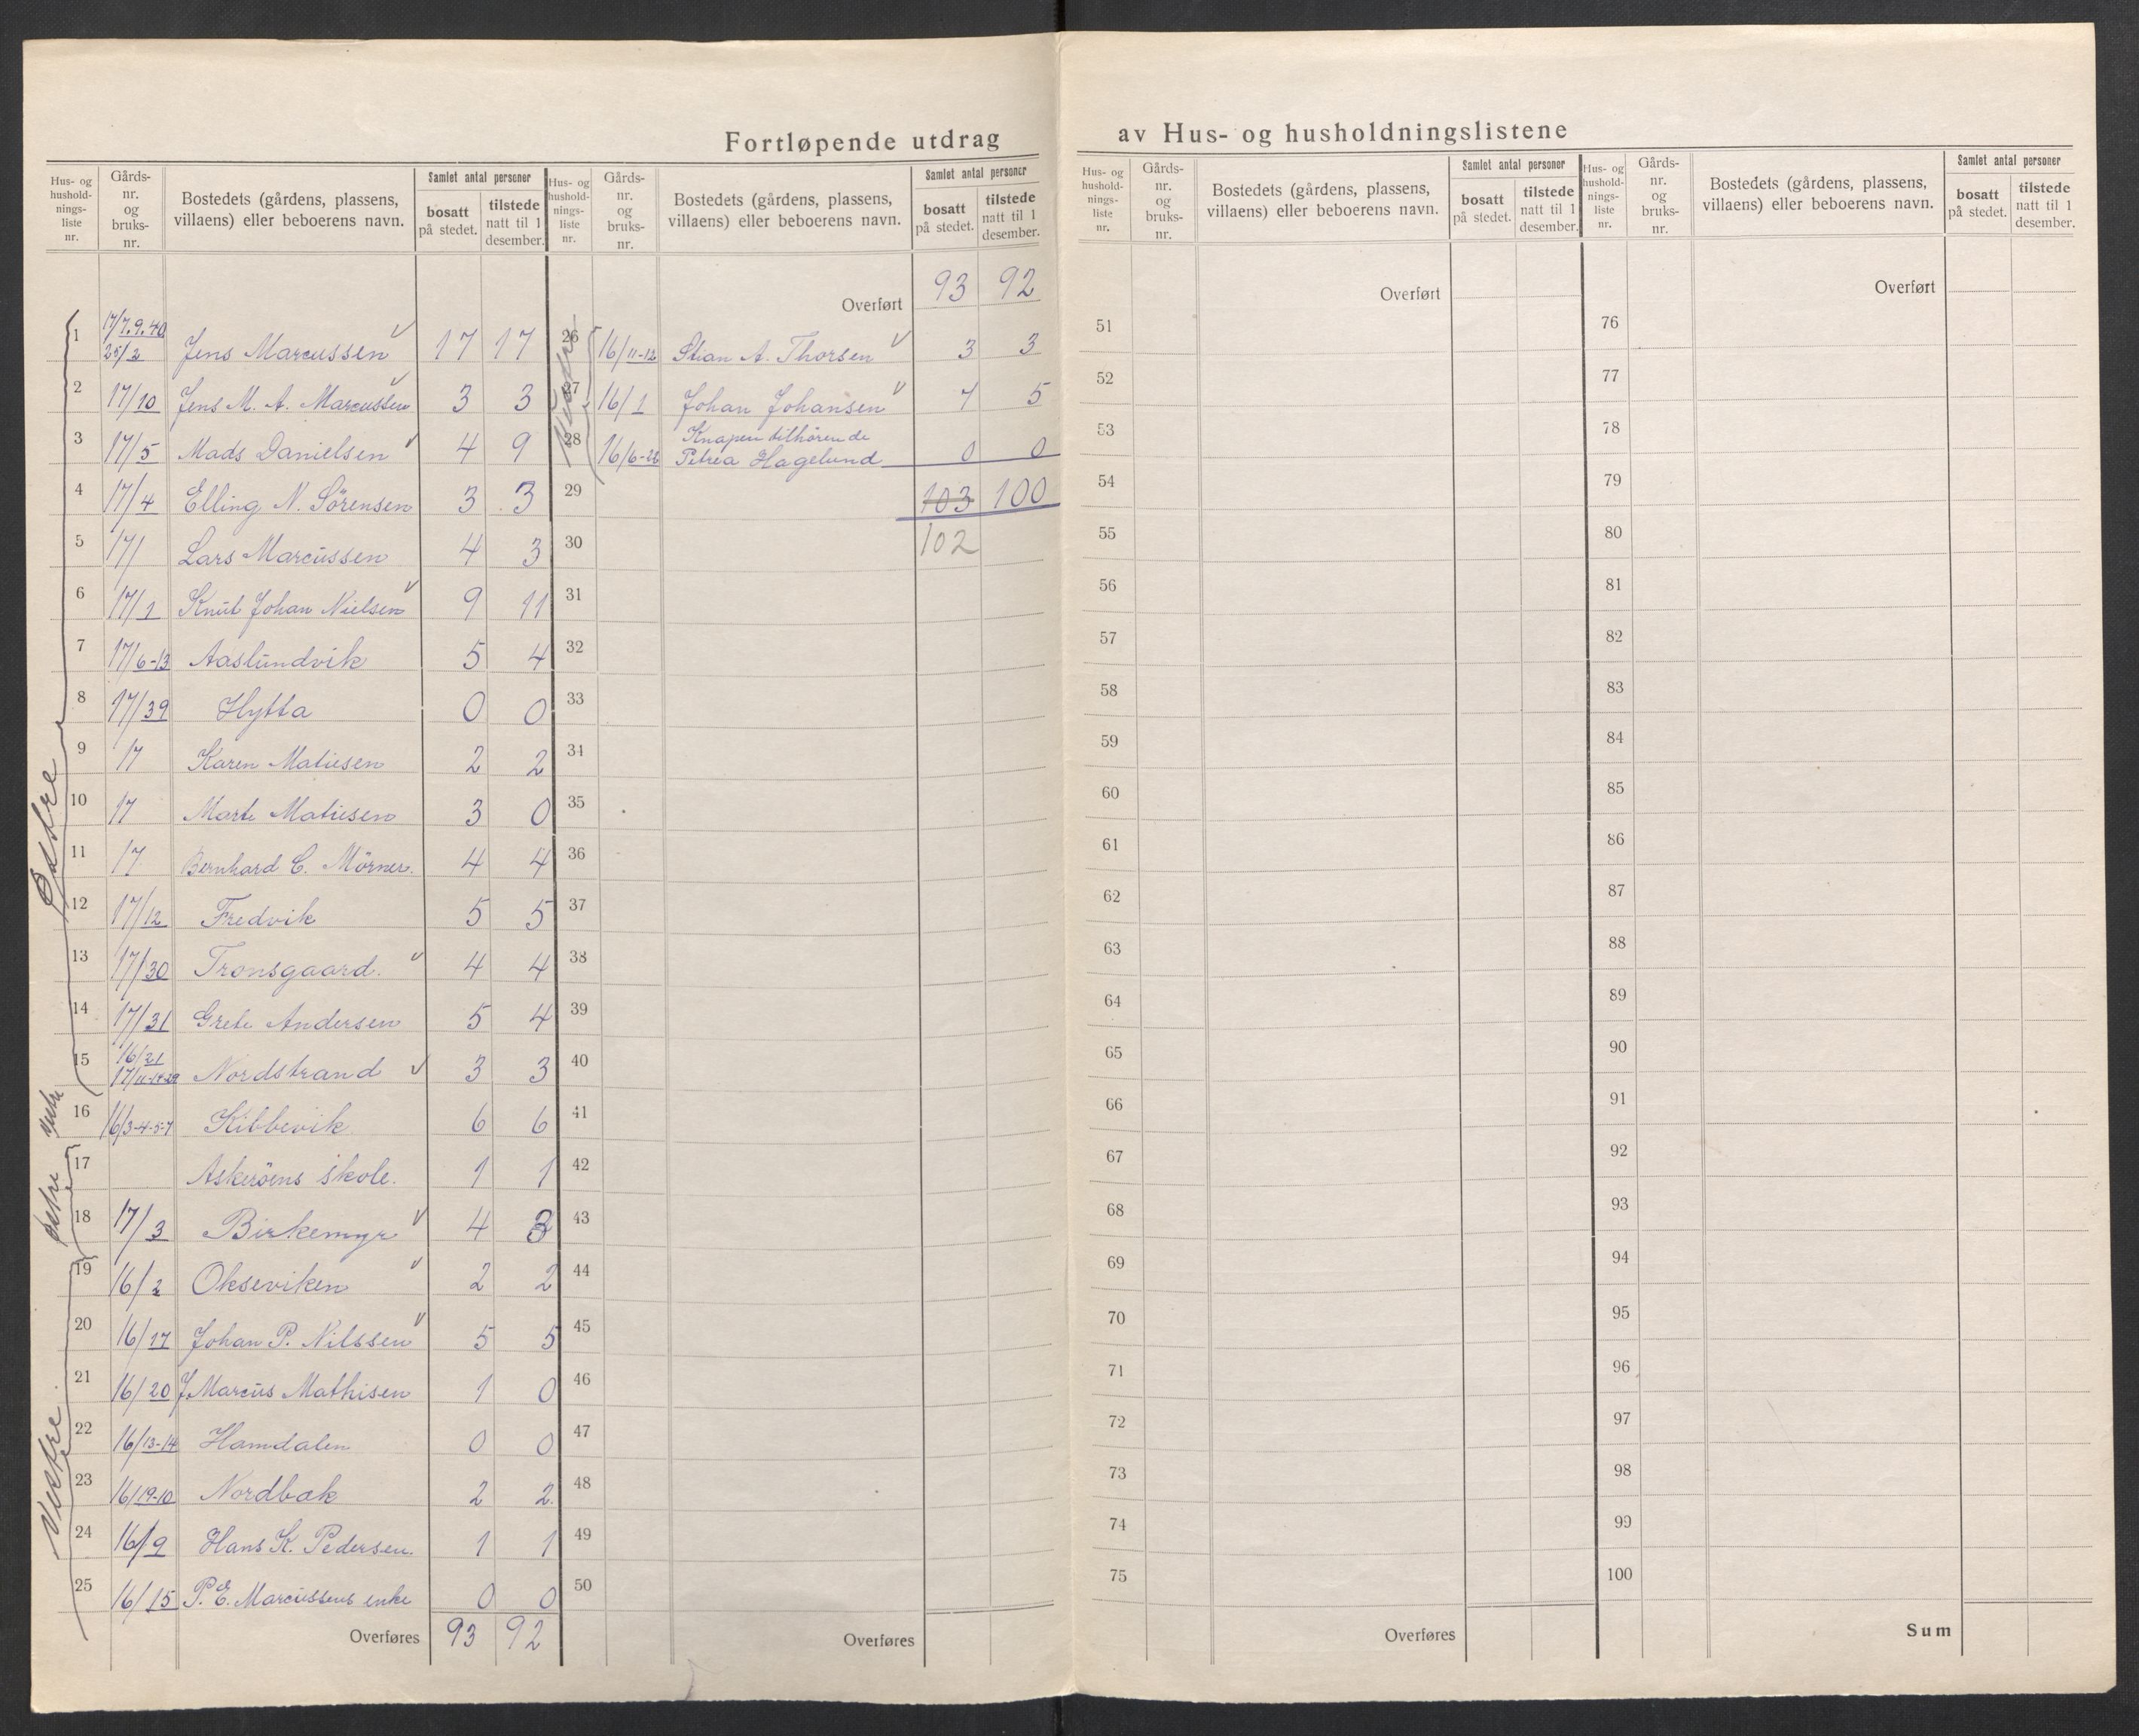 Fortløpende utdrag av Hus- og husholdningslistene
Hus- og husholdningsliste nr. | Gårds-nr. og bruks-nr. | Bostedets (gårdens, plassens, villaens) eller beboerens navn. | Samlet antal personer | bosatt på stedet. | tilstede natt til 1 desember.
1 17/7.9.40 25/2 Jens Marcussen 17 17
2 17/10 Jens M. A. Marcussen 3 3
3 17/5 Mads Danielsen 4 9
4 17/4 Elling N. Sörensen 3 3
5 17/ Lars Marcussen 4 3
6 17/1 Knut Johan Nielsen 9 11
7 17/6-13 Aaslundvik 5 4
8 17/39 Hytta 0 0
9 17 Karen Matiesen 2 2
10 17 Marte Matiesen 3 0
11 17 Bernhard C. Mörner. 4 4
12 17/12 Fredvik 5 5
13 17/30 Tronsgaard. 4 4
14 17/31 Grete Andersen 5 4
15 16/21 Nordstrand 3 3
16 16/3-4-5-7 Kibbevik 6 6
17 Askeröens skole. 1 1
18 17/3 Birkemyr 4 3
19 16/2 Okseviken 2 2
20 16/17 Johan P. Nilssen 5 5
21 16/20 J. Marcus Mathisen 1 0
22 16/13-14 Hamdalen 0 0
23 16/19-10 Nordbak 2 2
24 16/9 Hans K. Pedersen. 1 1
25 16/15 P. E. Marcussens enke 0 0
Overføres 93 92
Vestre.
Hus- og husholdningsliste nr. | Gårds-nr. og bruks-nr. | Bostedets (gårdens, plassens, villaens) eller beboerens navn. | Samlet antal personer | bosatt på stedet. | tilstede natt til 1 desember.
Overført 93 92
26 16/11-12 Stian A. Thorsen 3 3
27 16/1 Johan Johansen 7 5
28 16/6-22 Knapen tilhörende
Petrea Hagelund 0 0
29 103 100
30 102
31
32
33
34
35
36
37
38
39
40
41
42
43
44
45
46
47
48
49
50
Overføres
Hus- og husholdningsliste nr. | Gårds-nr. og bruks-nr. | Bostedets (gårdens, plassens, villaens) eller beboerens navn. | Samlet antal personer | bosatt på stedet. | tilstede natt til 1 desember.
Overført
51
52
53
54
55
56
57
58
59
60
61
62
63
64
65
66
67
68
69
70
71
72
73
74
75
Overføres
Hus- og husholdningsliste nr. | Gårds-nr. og bruks-nr. | Bostedets (gårdens, plassens, villaens) eller beboerens navn. | Samlet antal personer | bosatt på stedet. | tilstede natt til 1 desember.
Overført
76
77
78
79
80
81
82
83
84
85
86
87
88
89
90
91
92
93
94
95
96
97
98
99
100
Sum